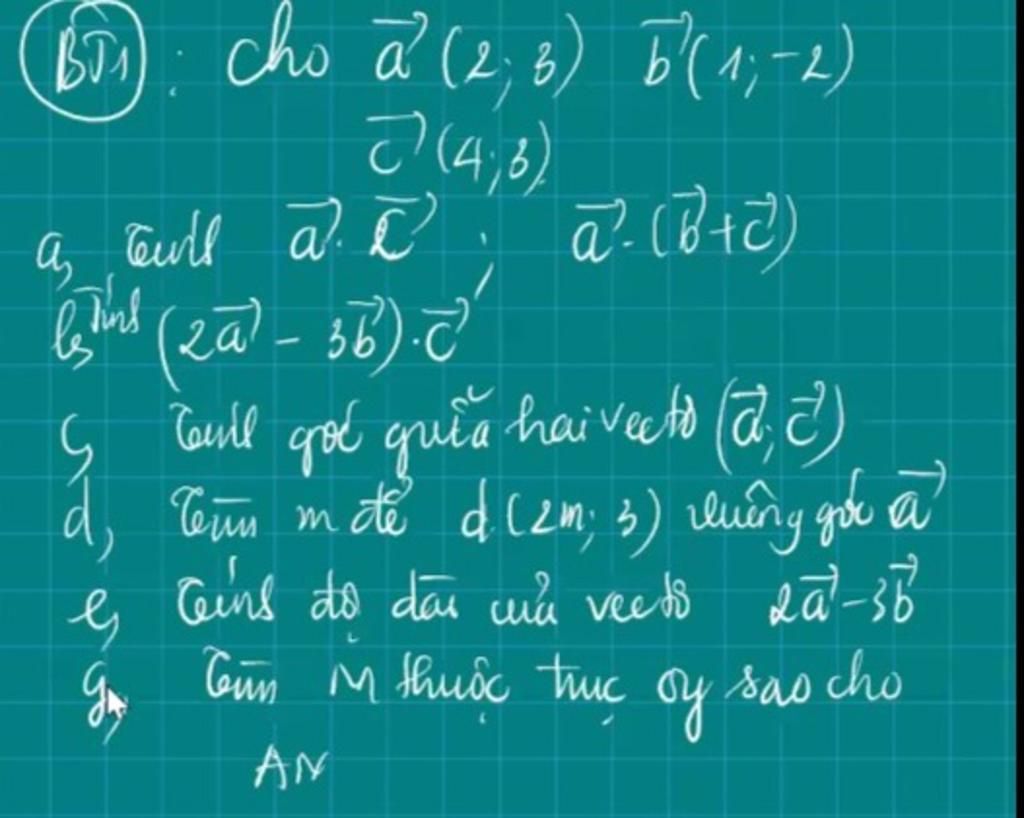 BT1 : cho a⃗ (2; 3) b⃗ (1; -2)
c⃗ (4; 3)
a, Tính a⃗ . c⃗ ; a⃗ . (b⃗ + c⃗)
b, Tính (2a⃗ - 3b⃗) . c⃗
c, Tính góc giữa hai vectơ (a⃗; c⃗)
d, Tìm m để d (2m; 3) vuông góc a⃗
e, Tính độ dài của vectơ 2a⃗ - 3b⃗
g, Tìm M thuộc trục oy sao cho
AN